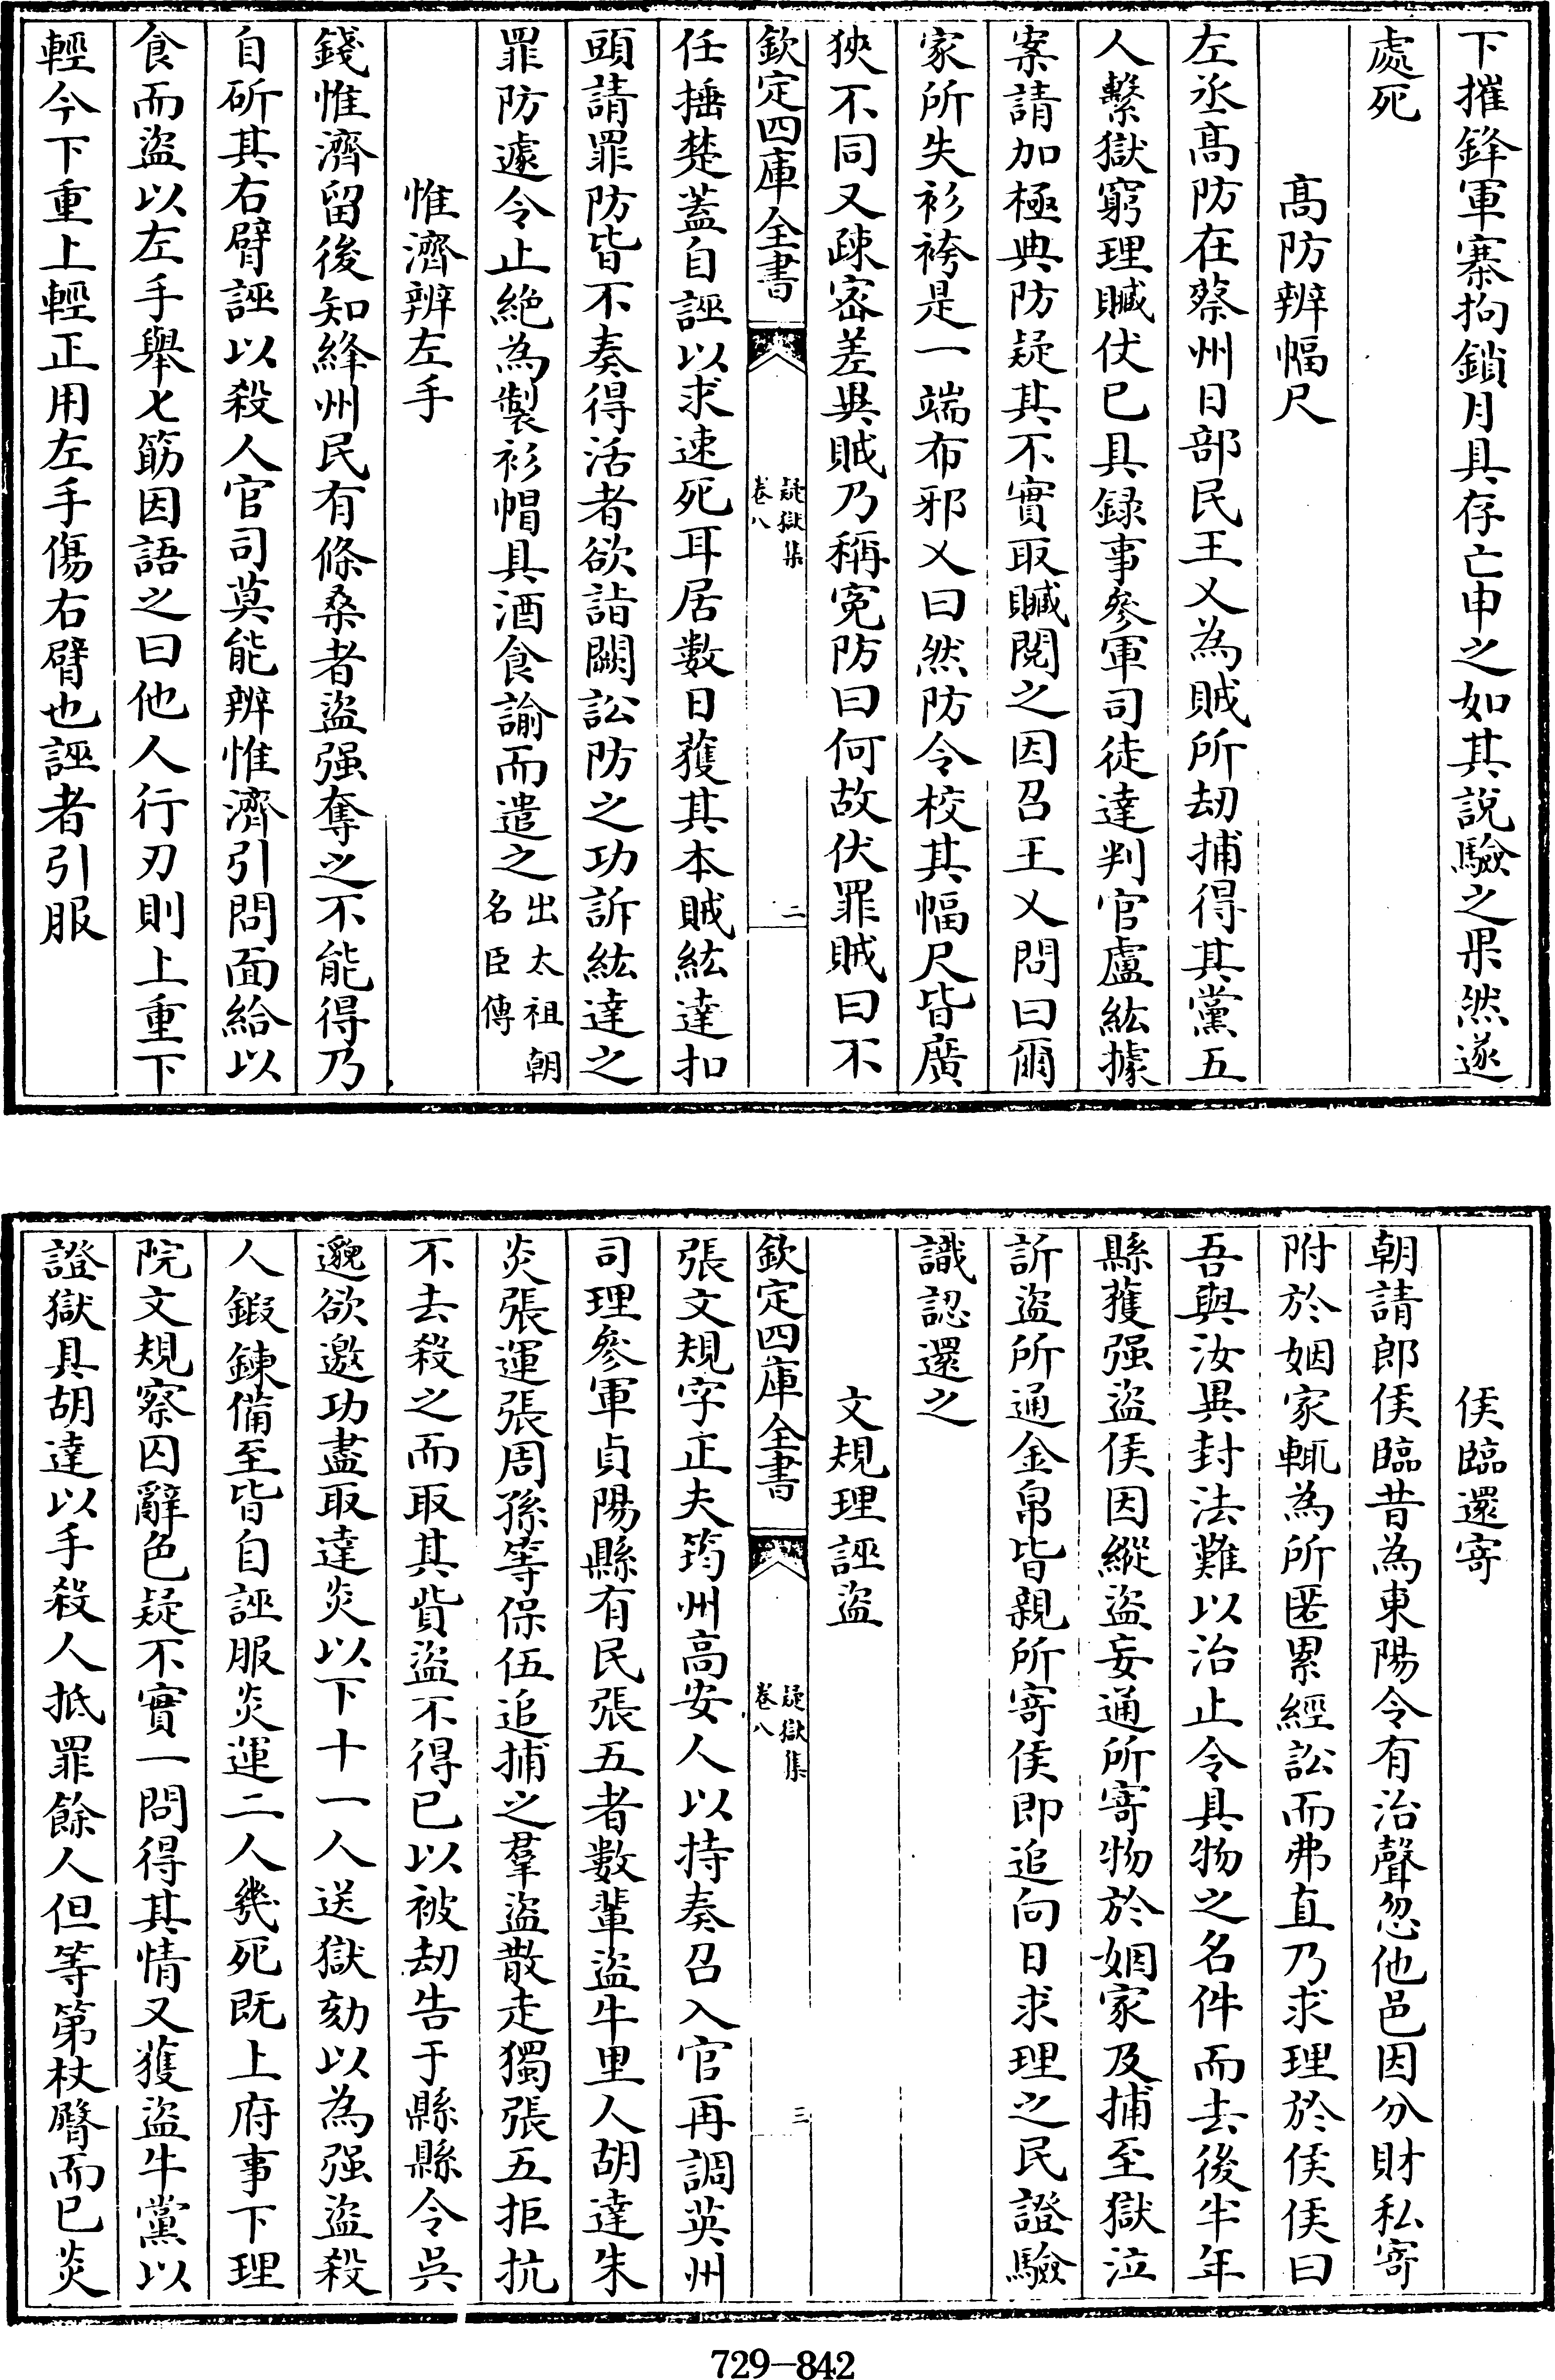 下摧鋒軍寨拘鎖月具存亡申之如其說驗之果然遂
處死
髙防辨幅尺
左丞髙防在蔡州日部民王乂為賊所刼捕得其黨五
人繫獄窮理贓伏已具録事參軍司徒達判官盧紘據
案請加極典防疑其不實取贓閱之因召王乂問曰爾
家所失衫袴是一端布邪乂曰然防令校其幅尺皆廣
狹不同又疎宻差異賊乃稱寃防曰何故伏罪賊曰不
欽定四庫全書
疑獄集
卷八
二
任捶楚蓋自誣以求速死耳居數日獲其本賊紘達扣
頭請罪防皆不奏得活者欲詣闕訟防之功訴紘達之
罪防遽令止絶為製衫帽具酒食諭而遣之出太祖朝
名臣傳
惟濟辨左手
錢惟濟留後知絳州民有條桑者盜强奪之不能得乃
自斫其右臂誣以殺人官司莫能辨惟濟引問面給以
食而盜以左手舉匕筯因語之曰他人行刃則上重下
輕今下重上輕正用左手傷右臂也誣者引服
侯臨還寄
朝請郎侯臨昔為東陽令有治聲忽他邑因分財私寄
附於姻家輒為所匿累經訟而弗直乃求理於侯侯曰
吾與汝異封法難以治止令具物之名件而去後半年
縣獲强盜侯因縱盜妄通所寄物於姻家及捕至獄泣
訢盜所通金帛皆親所寄侯即追向日求理之民證驗
識認還之
文規理誣盜
欽定四庫全書
疑獄集
卷八
三
張文規字正夫筠州高安人以持奏召入官再調英州
司理參軍貞陽縣有民張五者數輩盜牛里人胡達朱
炎張運張周孫等保伍追捕之羣盜散走獨張五拒抗
不去殺之而取其貲盜不得已以被刼告于縣縣令吳
邈欲邀功盡取達炎以下十一人送獄劾以為强盜殺
人鍜鍊備至皆自誣服炎運二人幾死既上府事下理
院文規察囚辭色疑不實一問得其情又獲盜牛黨以
證獄具胡達以手殺人抵罪餘人但等第杖臀而已炎
729—842